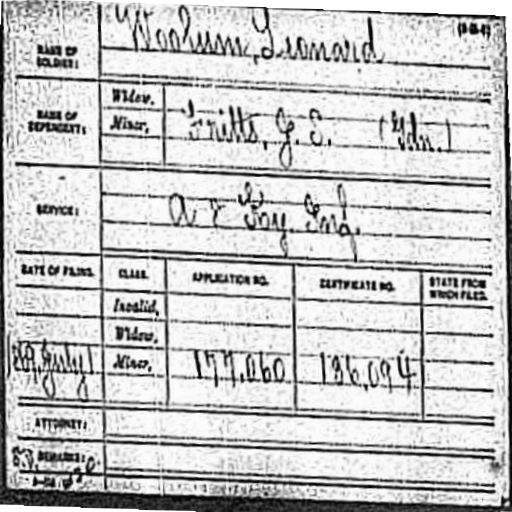 (3-06-6)
NAME OF SOLDIER: Woolum, Leonard
NAME OF DEPENDENT:
Widow,
Minor, Fritts, G. S. (Gdn.)
SERVICE: Ky. Inf.
DATE OF FILING. CLASS. APPLICATION NO. CERTIFICATE NO. STATE FROM WHICH FILED.
Invalid,
Widow,
1869, July 1 Minor, 177,060 136,094
ATTORNEY:
REMARKS: